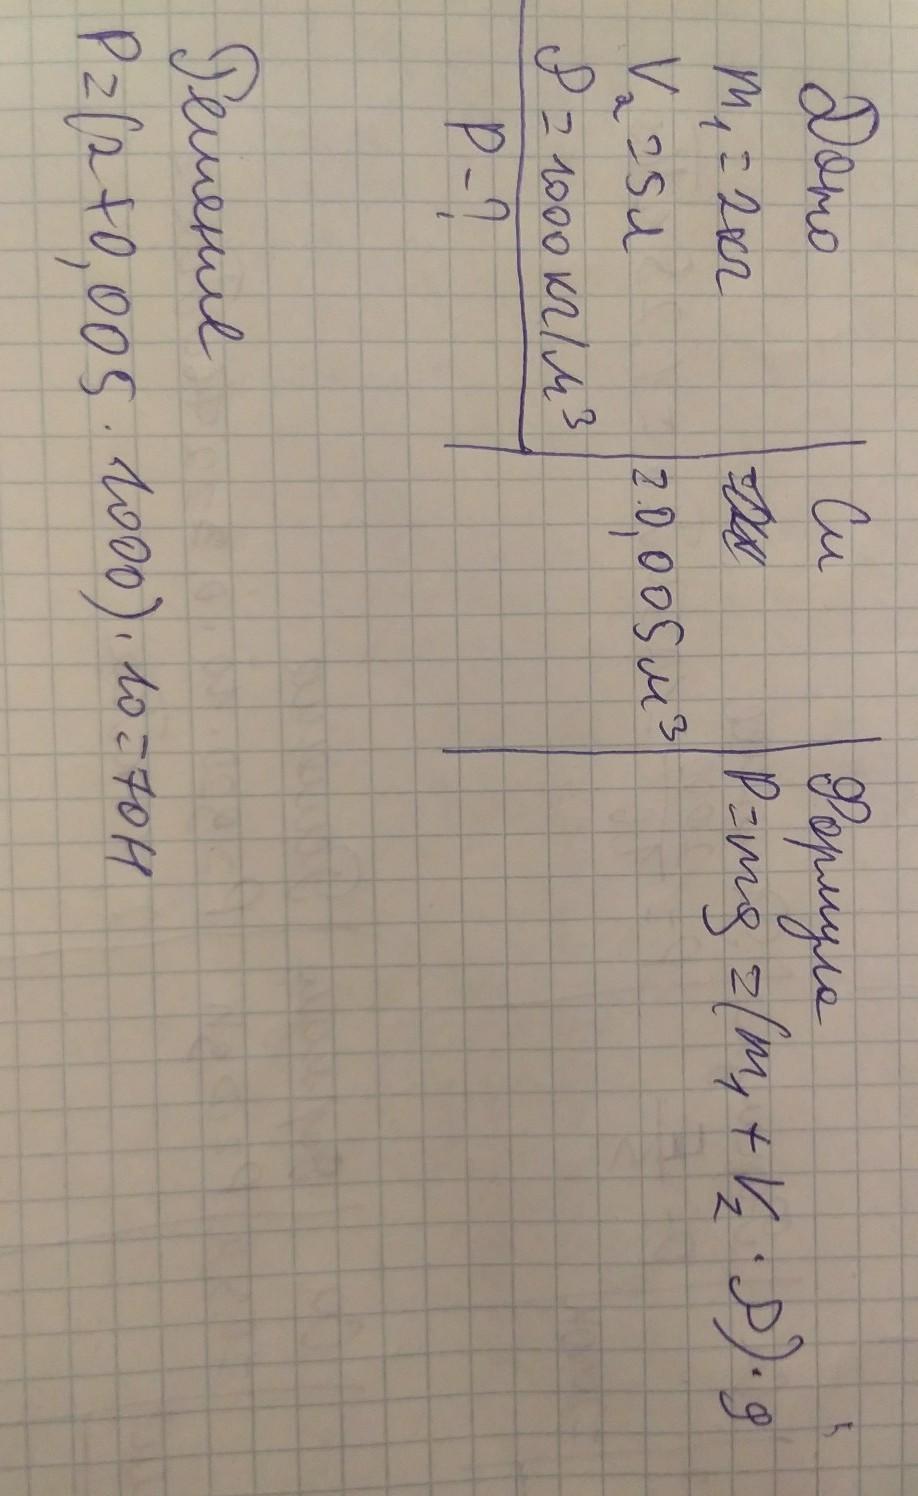 Дано
m₁ = 2кг
V₂ = 5л
ρ = 1000 кг/м³
P - ?
Си
= 0,005 м³
Формула
P = mg = (m₁ + V₂ · ρ) · g
Решение
P = (2 + 0,005 · 1000) · 10 = 70 Н